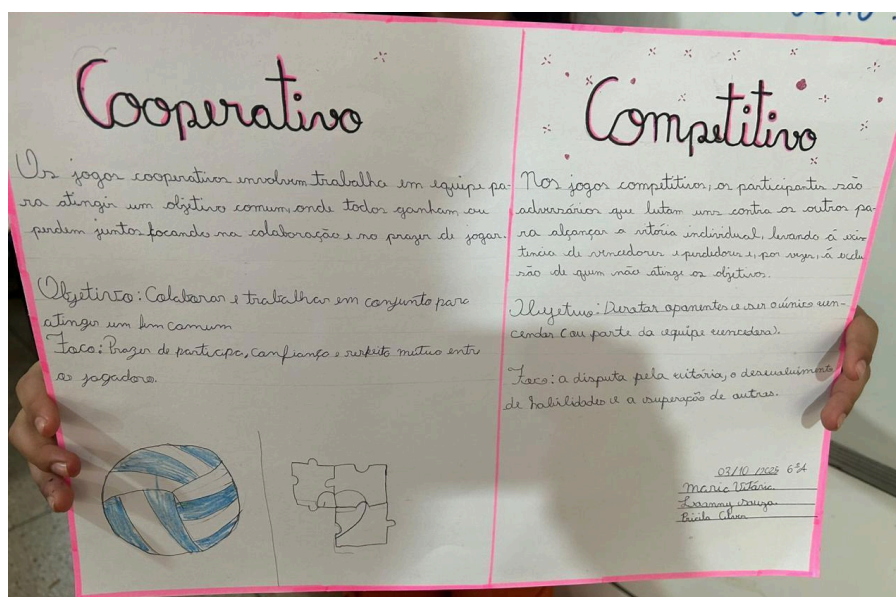 Cooperativo
Os jogos cooperativos envolvem trabalho em equipe pa-
ra atingir um objetivo comum, onde todos ganham ou
perdem juntos focando na colaboração e no prazer de jogar.
Objetivo: Colaborar e trabalhar em conjunto para
atingir um fim comum
Foco: Prazer de participa, confiança e respeito mutuo entre
os jogadores.
Competitivo
Nos jogos competitivos, os participantes são
adversários que lutam uns contra os outros pa-
ra alçançar a vitória individual, levando á exis
tencia de vencedores e perdedores e, por vezes, á exclu
são de quem não atinge os objetivos.
Objetivo: Derotar oponentes e ser o único ven-
cendor (ou parte da equipe vencedora).
Foco: a disputa pela vitória, o desenvolvimento
de habilidades e a superação de outros.
03/10/2025 6ºA
Maria Vitória
Souza